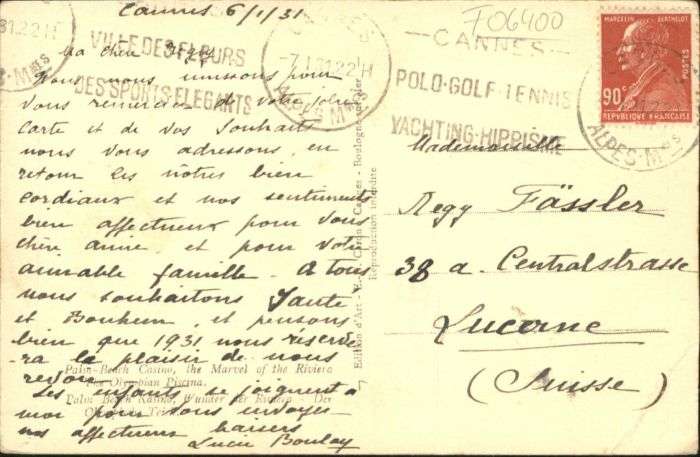 Cannes 6/1/31
F06400
31.22H
VILLE DES FLEURS
DES SPORTS ELEGANTS
7.1.31.22H
CANNES
POLO·GOLF·TENNIS
YACHTING·HIPPISME
ALPES-Mmes
MARCELIN BERTHELOT
POSTES
90c
REPVBLIQVE FRANÇAISE
Ma chère
Nous nous unissons pour
vous remercier de votre jolie
carte et de vos Souhaits
nous vous adressons en
retour les nôtres bien
cordiaux et nos sentiments
bien affectueux pour vous
chère amie et pour votre
aimable famille. A tous
nous souhaitons Santé
et Bonheur, et pensons
bien que 1931 nous réserve-
ra le plaisir de nous
revoir
Les enfants se joignent à
moi pour vous envoyer
nos affectueux baisers
Lucie Boulay
Palm-Beach Casino, the Marvel of the Riviera
The Olympian Piscina.
Palm Beach Kasino, Wunder der Riviera - Der
Edition d'Art - Cannes - Boulogne
Reproduction interdite
Mademoiselle
Negy Fässler
38 a. Centralstrasse
Lucerne
(Suisse)